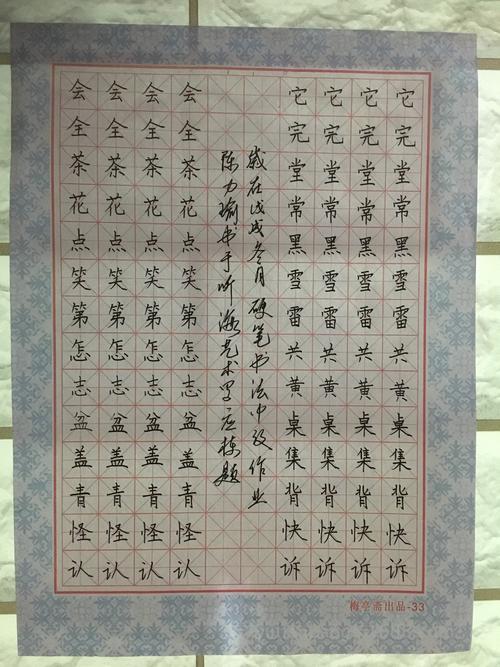 它完堂常黑雪雷共黄桌集背快诉
它完堂常黑雪雷共黄桌集背快诉
它完堂常黑雪雷共黄桌集背快诉
它完堂常黑雪雷共黄桌集背快诉
岁在戊戌冬月硬笔书法中级作业
陈力瑜书于听海艺术罗应栋题
会全茶花点笑第怎志盆盖青怪认
会全茶花点笑第怎志盆盖青怪认
会全茶花点笑第怎志盆盖青怪认
会全茶花点笑第怎志盆盖青怪认
梅亭斋出品-33